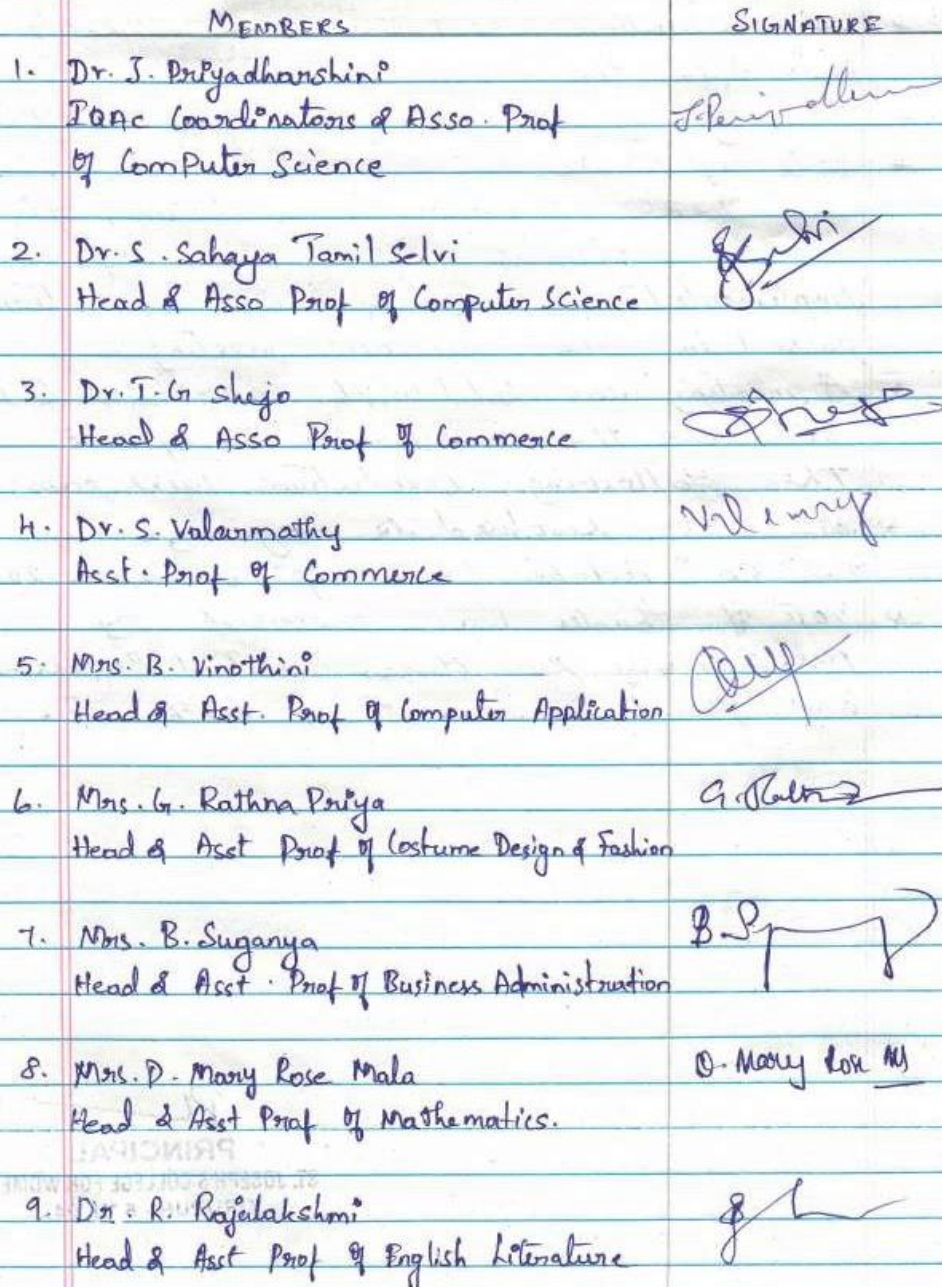 MEMBERS SIGNATURE
1. Dr. J. Priyadharshini
IQAC Coordinators & Asso. Prof
of Computer Science
2. Dr. S. Sahaya Tamil Selvi
Head & Asso Prof of Computer Science
3. Dr. T. G Shejo
Head & Asso Prof of Commerce
4. Dr. S. Valarmathy
Asst. Prof of Commerce
5. Mrs. B. Vinothini
Head & Asst. Prof of Computer Application
6. Mrs. G. Rathna Priya
Head & Asst Prof of Costume Design & Fashion
7. Mrs. B. Suganya
Head & Asst. Prof of Business Administration
8. Mrs. D. Mary Rose Mala D. Mary Rose M
Head & Asst Prof of Mathematics.
PRINCIPAL
ST. JOSEPH'S COLLEGE FOR WOMEN
9. Dr. R. Rajalakshmi
Head & Asst Prof of English Literature